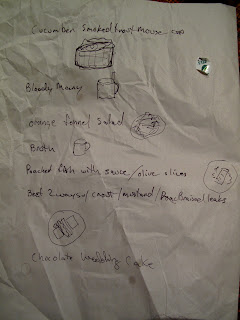 Cucumber smoked trout mousse cup
Bloody Maary
orange fennel salad
Broth
Poached fish with sauce / olive slices
Beef 2 ways w/ crust / mustard / Pan braised leaks
Chocolate Wedding Cake